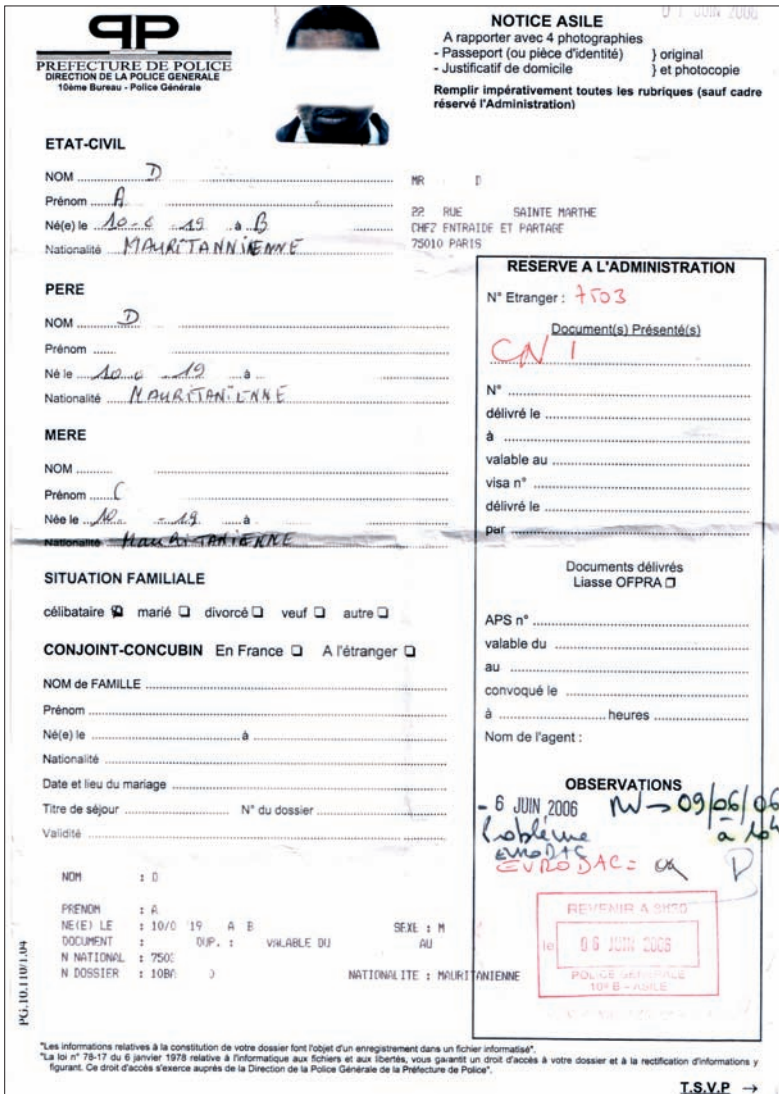 PP
PREFECTURE DE POLICE
DIRECTION DE LA POLICE GENERALE
10ème Bureau - Police Générale
01 JUIN 2006
NOTICE ASILE
A rapporter avec 4 photographies
- Passeport (ou pièce d'identité) } original
- Justificatif de domicile } et photocopie
Remplir impérativement toutes les rubriques (sauf cadre
réservé l'Administration)
ETAT-CIVIL
NOM D
Prénom A
Né(e) le 10-6 19 à B
Nationalité MAURITANNIENNE
MR D
22 RUE SAINTE MARTHE
CHEZ ENTRAIDE ET PARTAGE
75010 PARIS
PERE
NOM D
Prénom
Né le 10 19 à
Nationalité MAURITANIENNE
MERE
NOM
Prénom C
Née le 10 - 19 à
Nationalité MAURITANIENNE
SITUATION FAMILIALE
célibataire marié divorcé veuf autre
CONJOINT-CONCUBIN En France A l'étranger
NOM de FAMILLE
Prénom
Né(e) le à
Nationalité
Date et lieu du mariage
Titre de séjour N° du dossier
Validité
NOM : D
PRENOM : A
NE(E) LE : 10/0 19 A B SEXE : M
DOCUMENT : DUP. : VALABLE DU AU
N NATIONAL : 750
N DOSSIER : 10BA NATIONALITE : MAURITANIENNE
PG.10.110/1.04
RESERVE A L'ADMINISTRATION
N° Etranger : 7503
Document(s) Présenté(s)
CN I
N°
délivré le
à
valable au
visa n°
délivré le
par
Documents délivrés
Liasse OFPRA
APS n°
valable du
au
convoqué le
à heures
Nom de l'agent :
OBSERVATIONS
- 6 JUIN 2006 → 09/06/06
Problème à 10h
EURODAC
EURODAC =
REVENIR A 9H30
le 06 JUIN 2006
POLICE GENERALE
10e B - ASILE
"Les informations relatives à la constitution de votre dossier font l'objet d'un enregistrement dans un fichier informatisé".
"La loi n° 78-17 du 6 janvier 1978 relative à l'informatique aux fichiers et aux libertés, vous garantit un droit d'accès à votre dossier et à la rectification d'informations y
figurant. Ce droit d'accès s'exerce auprès de la Direction de la Police Générale de la Préfecture de Police".
T.S.V.P →